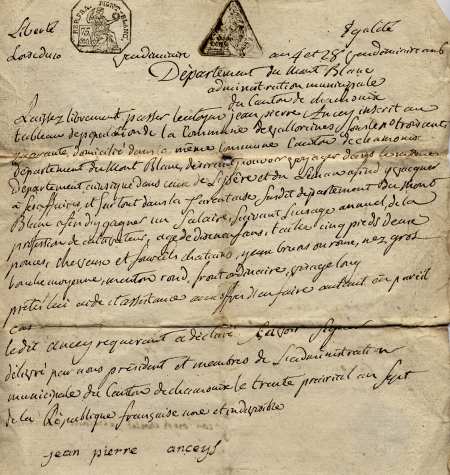 Liberté Egalité
vendemiaire an 4 et 28 vendemiaire an 6
Département du Mont Blanc
administration municipale
du Canton de chamonix
Laissez librement passer le citoyen jean pierre Ancey inscrit au
tableau de population de la Commune de vallorcines sous le n.o troiscent
quarante, domicilié dans la même commune Canton de chamonix
Département du Mont Blanc, désirant pouvoir voyager dans le même
Département ainsi que dans ceux de L'isère et du Leman afin d'y vaquer
à ses affaires, et surtout dans la tarentaise susdit département Du Mont
Blanc afin d'y gagner un Salaire, suivant l'usage annuel de la
profession de agé de ans, taille cinq pieds deux
pouces, cheveux et sourcils chatains, yeux bruns ou roux, nez gros
bouche moyenne, menton rond, front ordinaire, visage long
prêtez lui aide et assistance aux offres d'en faire autant en pareil
cas
le dit ancey requerant a déclaré savoir signer
délivré par nous président et membres de L'administration
municipale du Canton de chamonix le trente prairial an sept
de la République française une et indivisible
jean pierre anceys